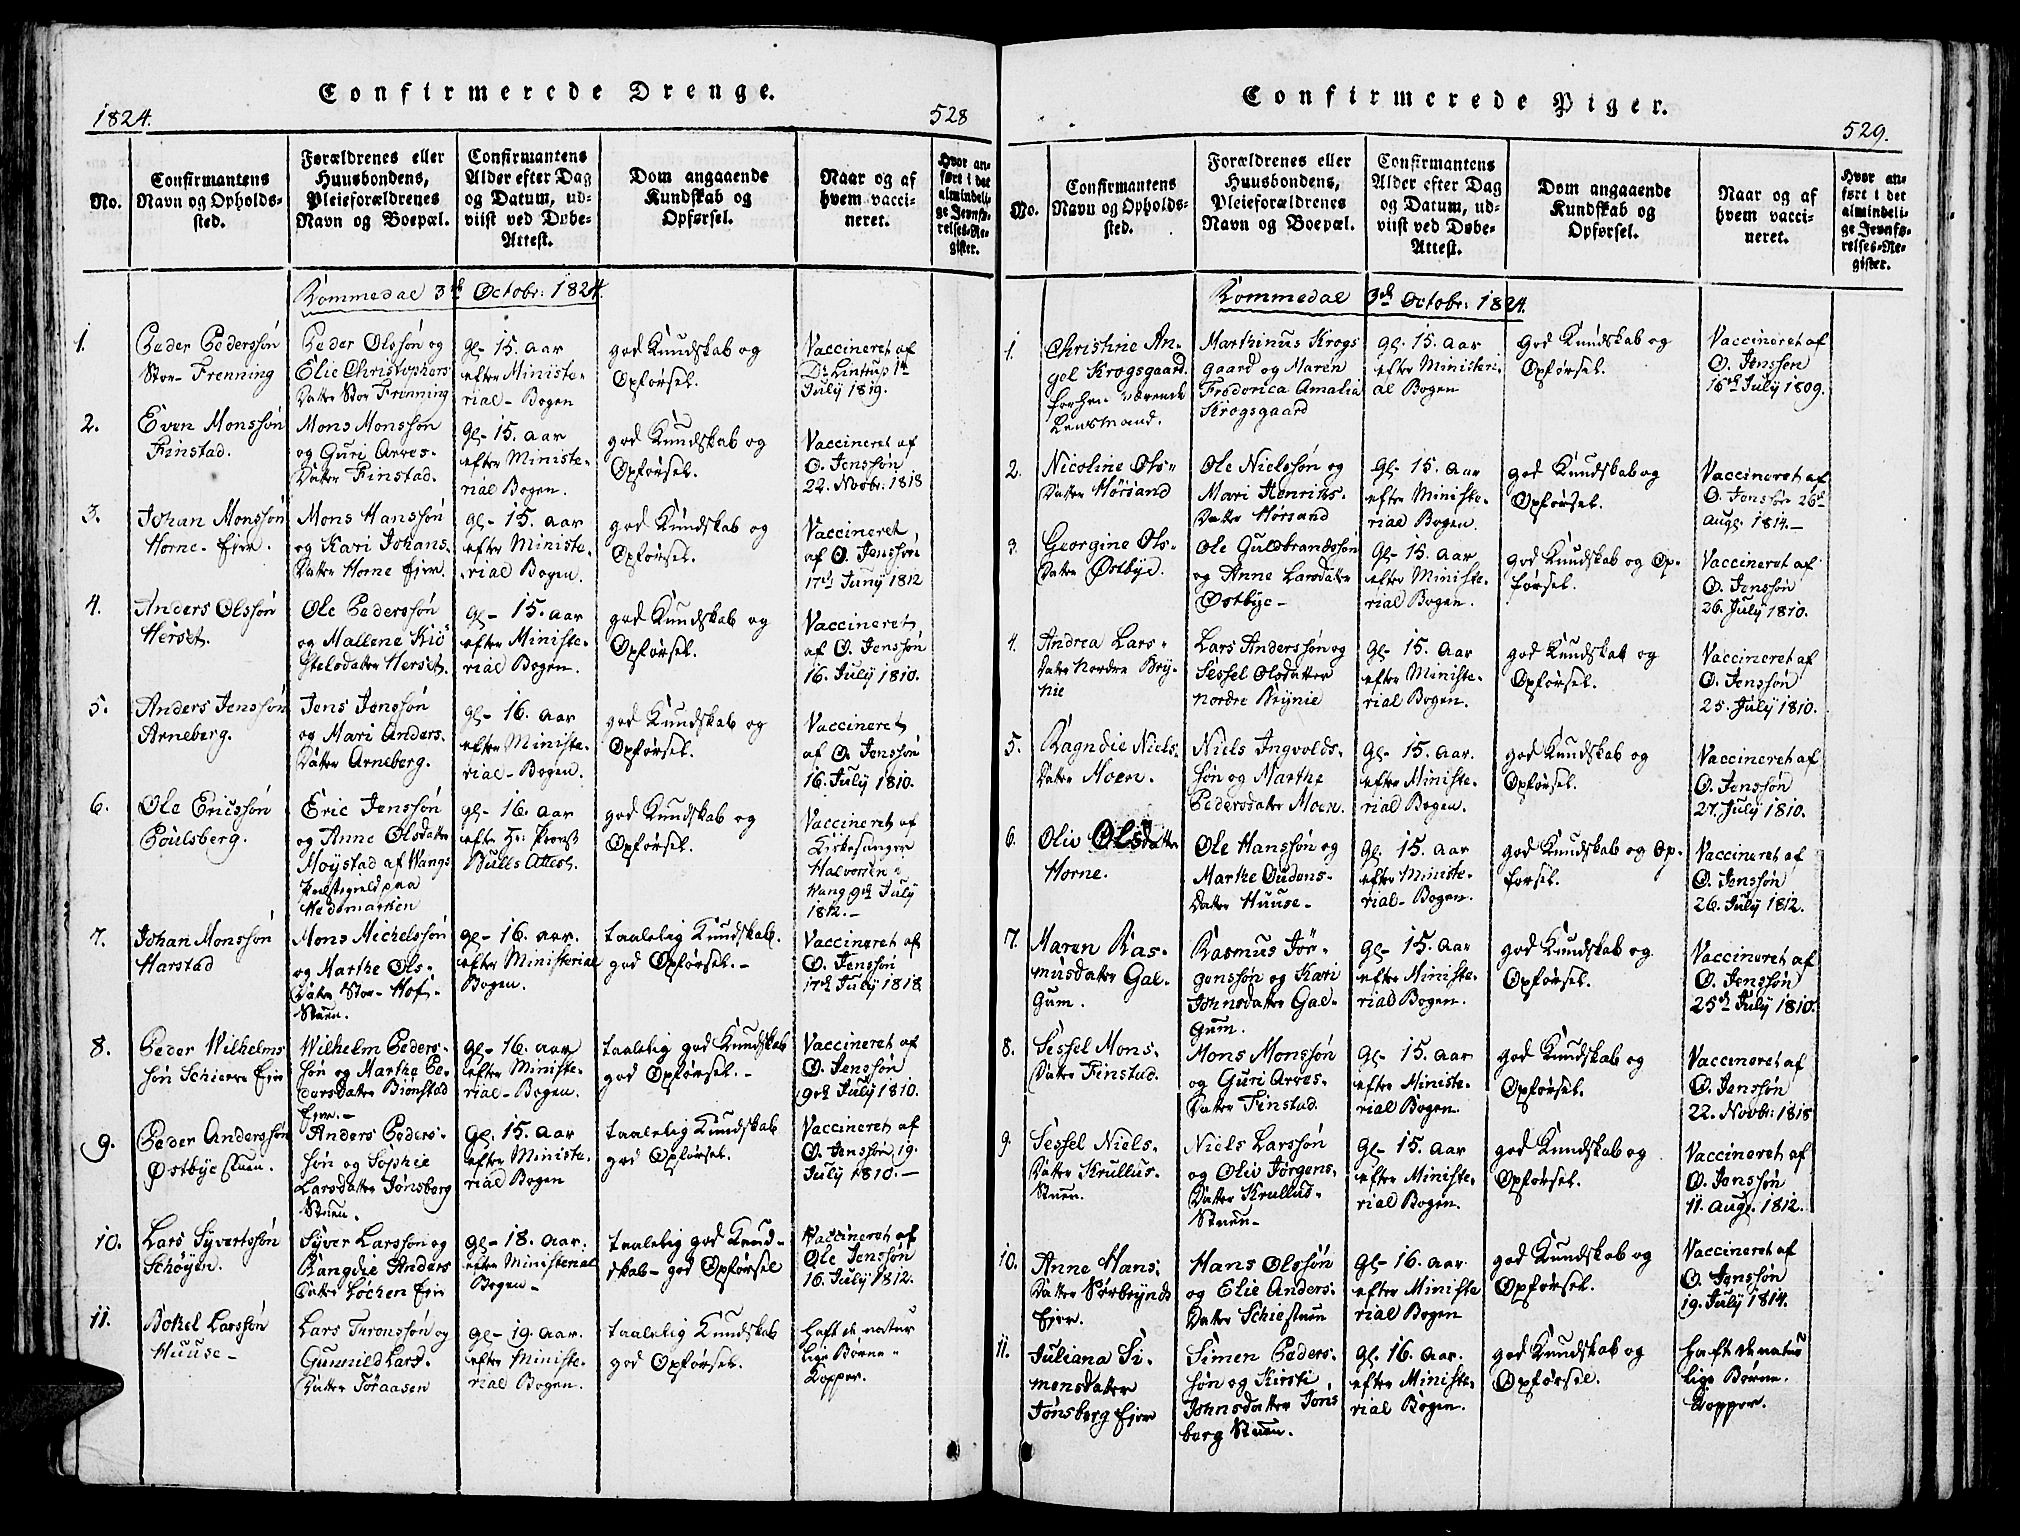 Confirmerede Drenge.
1824.
528
No.
Confirmantens
Navn og Opholds-
sted.
Forældrenes eller
Huusbondens,
Pleieforældrenes
Navn og Boepæl.
Confirmantens
Alder efter Dag
og Datum, ud-
viist ved Døbe-
Attest.
Dom angaaende
Kundskab og
Opførsel.
Naar og af
hvem vacci-
neret.
Hvor an-
ført i det
almindeli-
ge Jevnfø-
relses-Re-
gister.
Rommedal 3de Octobr: 1824.
1.
Peder Pederssøn
Stor-Frenning
Peder Olssøn og
Elie Christophers
Datter Stor Frenning
Gl- 15. Aar
efter Ministe-
rial- Bogen
god Kundskab og
Opførsel.
Vaccineret af
Dr. Lintrup 1te
July 1819.
2.
Even Monssøn
Finstad.
Mons Monssøn
og Guri Arres-
Datter Finstad.
Gl- 15. Aar
efter Ministe-
rial Bogen.
god Kundskab og
Opførsel.
Vaccineret af
O. Jenssøn
22. Novbr: 1818
3.
Johan Monssøn
Horne- Ejer.
Mons Hanssøn
og Kari Johans-
Datter Horne Ejer.
Gl- 15. Aar
efter Ministe-
rial Bogen.
god Kundskab og
Opførsel.
Vaccineret
af O. Jenssøn
17de Juny 1812
4.
Anders Olssøn
Herset.
Ole Pederssøn
og Mallene Kiø-
stelsdatter Herset.
Gl- 15. Aar
efter Ministe-
rial Bogen.
god Kundskab og
Opførsel.
Vaccineret
af O. Jenssøn
16. July 1810.
5.
Anders Jenssøn
Arneberg.
Jens Jenssøn
og Mari Anders-
Datter Arneberg.
Gl- 16. Aar
efter Ministe-
rial- Bogen.
god Kundskab og
Opførsel.
Vaccineret
af O. Jenssøn
16. July 1810.
6.
Ole Ericssøn
Poulsberg.
Eric Jenssøn
og Anne Olsdatter
Moystad af Wangs
Præstegield paa
Hedemarken
Gl- 16. Aar
efter Hr: Provst
Bulls Attest.
god Kundskab og
Opførsel.
Vaccineret af
Kirkesanger
Halvorsen-
Wang 9de July
1812.-
7.
Johan Monssøn
Harstad
Mons Michelssøn
og Marthe Ols-
Datter Stor- Hof-
Stuen.
Gl- 16. Aar.
efter Ministerial
Bogen.
taalelig Kundskab.
god Opførsel.-
Vaccineret af
O. Jenssøn
17de July 1818
8.
Peder Wilhelms
søn Schierre Ejer
Wilhelm Peders-
søn og Marthe Pe-
dersdatter Biønstad
Ejer.-
Gl- 16. Aar
efter Ministe-
rial- Bogen.
taalelig god Kundskab
god Opførsel.-
Vaccineret af
O. Jenssøn
9de July 1810.
9.
Peder Anderssøn
Østbye stuen.
Anders Peders-
søn og Sophie
Larsdatter Jønsberg
Stuen.
Gl. 15. Aar
efter Ministe-
rial Bogen
taalelig Kundskab
god Opførsel.
Vaccineret af
O. Jenssøn 19.
July 1810.-
10.
Lars Syvertssøn
Schøyen.
Syver Larssøn og
Rangdie Anders
Datter Løchen Ejer
Gl- 18. Aar.
efter Ministerial
Bogen-
taalelig god Kund-
skab- god Opførsel
Vaccineret af
Ole Jenssøn
16. July 1812.
11.
Botel Larssøn
Huuse-
Lars Tronssøn og
Gunnild Lars-
Datter Toraasen
Gl- 19. Aar.
efter Ministe-
rial Bogen.
taalelig Kundskab
god Opførsel.
haft de natur
lige Børne-
Kopper.
Confirmerede Piger.
529.
No.
Confirmantens
Navn og Opholds-
sted.
Forældrenes eller
Huusbondens,
Pleieforældrenes
Navn og Boepæl.
Confirmantens
Alder efter Dag
og Datum, ud-
viist ved Døbe-
Attest.
Dom angaaende
Kundskab og
Opførsel.
Naar og af
hvem vacci-
neret.
Hvor an-
ført i det
almindeli-
ge Jevnfø-
relses-Re-
gister.
Rommedal 3de Octobr: 1824.
1.
Christine An-
gel Krogsgaard
forhen værende
Lensmand.
Marthinus Krogs
gaard og Maren
Frederica Amalia
Krogsgaard
Gl. 15. Aar
efter Ministeri
al Bogen
god Kundskab og
Opførsel.
Vaccineret af
O. Jenssen
16de July 1809.
2.
Nicoline Ols-
Datter Hørsand
Ole Nielssøn og
Mari Henrichs-
Datter Hørsand
Gl- 15. Aar
efter Ministe-
rial Bogen.
god Kundskab og
Opførsel.
Vaccineret af
O. Jenssøn 26de
Augl. 1814.-
3.
Georgine Ols-
Datter Østbye.
Ole Guldbrandssøn
og Anne Larsdatter
Østbye-
Gl- 15. Aar
efter Ministe-
rial Bogen.
god Kundskab og Op-
førsel.
Vaccineret af
O. Jenssøn
26. July 1810.
4.
Andrea Lars-
Datter Nordre Bry-
nie
Lars Anderssøn og
Sessel Olsdatter
Nordre Brynie
Gl- 15. Aar
efter Ministe-
rial Bogen.
god Kundskab og
Opførsel.
Vaccineret af
O. Jenssøn
25. July 1810.
5.
Ragndie Niels-
Datter Moen.
Niels Ingvolds-
søn og Marthe
Pedersdatter Moen.
Gl- 15. Aar.
efter Ministe-
rial Bogen.
god Kundskab og
Opførsel.
Vaccineret af
O. Jenssøn
27. July 1810.
6.
Oliv Olsdatter
Horne.
Ole Hanssøn og
Marthe Oudens-
Datter Huuse-
Gl. 15. Aar
efter Ministe-
rial- Bogen.
god Kundskab og Op-
førsel.
Vaccineret af
O. Jenssøn
26. July 1812.
7.
Maren Ras-
musdatter Gal-
gum.
Rasmus Jør-
genssøn og Kari
Johnsdatter Gal-
gum.
Gl- 15. Aar
efter Ministe-
rial Bogen.
god Kundskab og
Opførsel.
Vaccineret af
O. Jenssøn
25de July 1810.
8.
Sessel Mons-
Datter Finstad.
Mons Monssøn
og Guri Arres-
Datter Finstad.
Gl- 15. Aar
efter Ministe-
rial Bogen.
god Kundskab og
Opførsel.
Vaccineret af
O. Jenssøn
22. Novbr: 1818
9.
Sessel Niels-
Datter Krullus-
Stuen.
Niels Larssøn
og Oliv Jørgens-
Datter Krullus-
Stuen-
Gl- 15. Aar
efter Ministe-
rial Bogen.
god Kundskab og
Opførsel.
Vaccineret af
O. Jenssøn
11. Augl. 1812.
10.
Anne Hans-
Datter Sørbrynds
Ejer.
Hans Olssøn
og Elie Anders-
Datter Schiestuen
Gl- 16. Aar.
efter Ministe
rial Bogen
god Kundskab og
Opførsel.
Vaccineret af
O. Jenssøn
19. July 1814.
11.
Juliana Si-
mensdatter
Jønsberg Ejer
Simen Peders-
søn og Kirsti
Johnsdatter Jøns
berg Stuen.
Gl. 16. Aar.
efter Ministe-
rial Bogen.
god Kundskab og
Opførsel.
haft de natur
lige Børne-
Kopper.